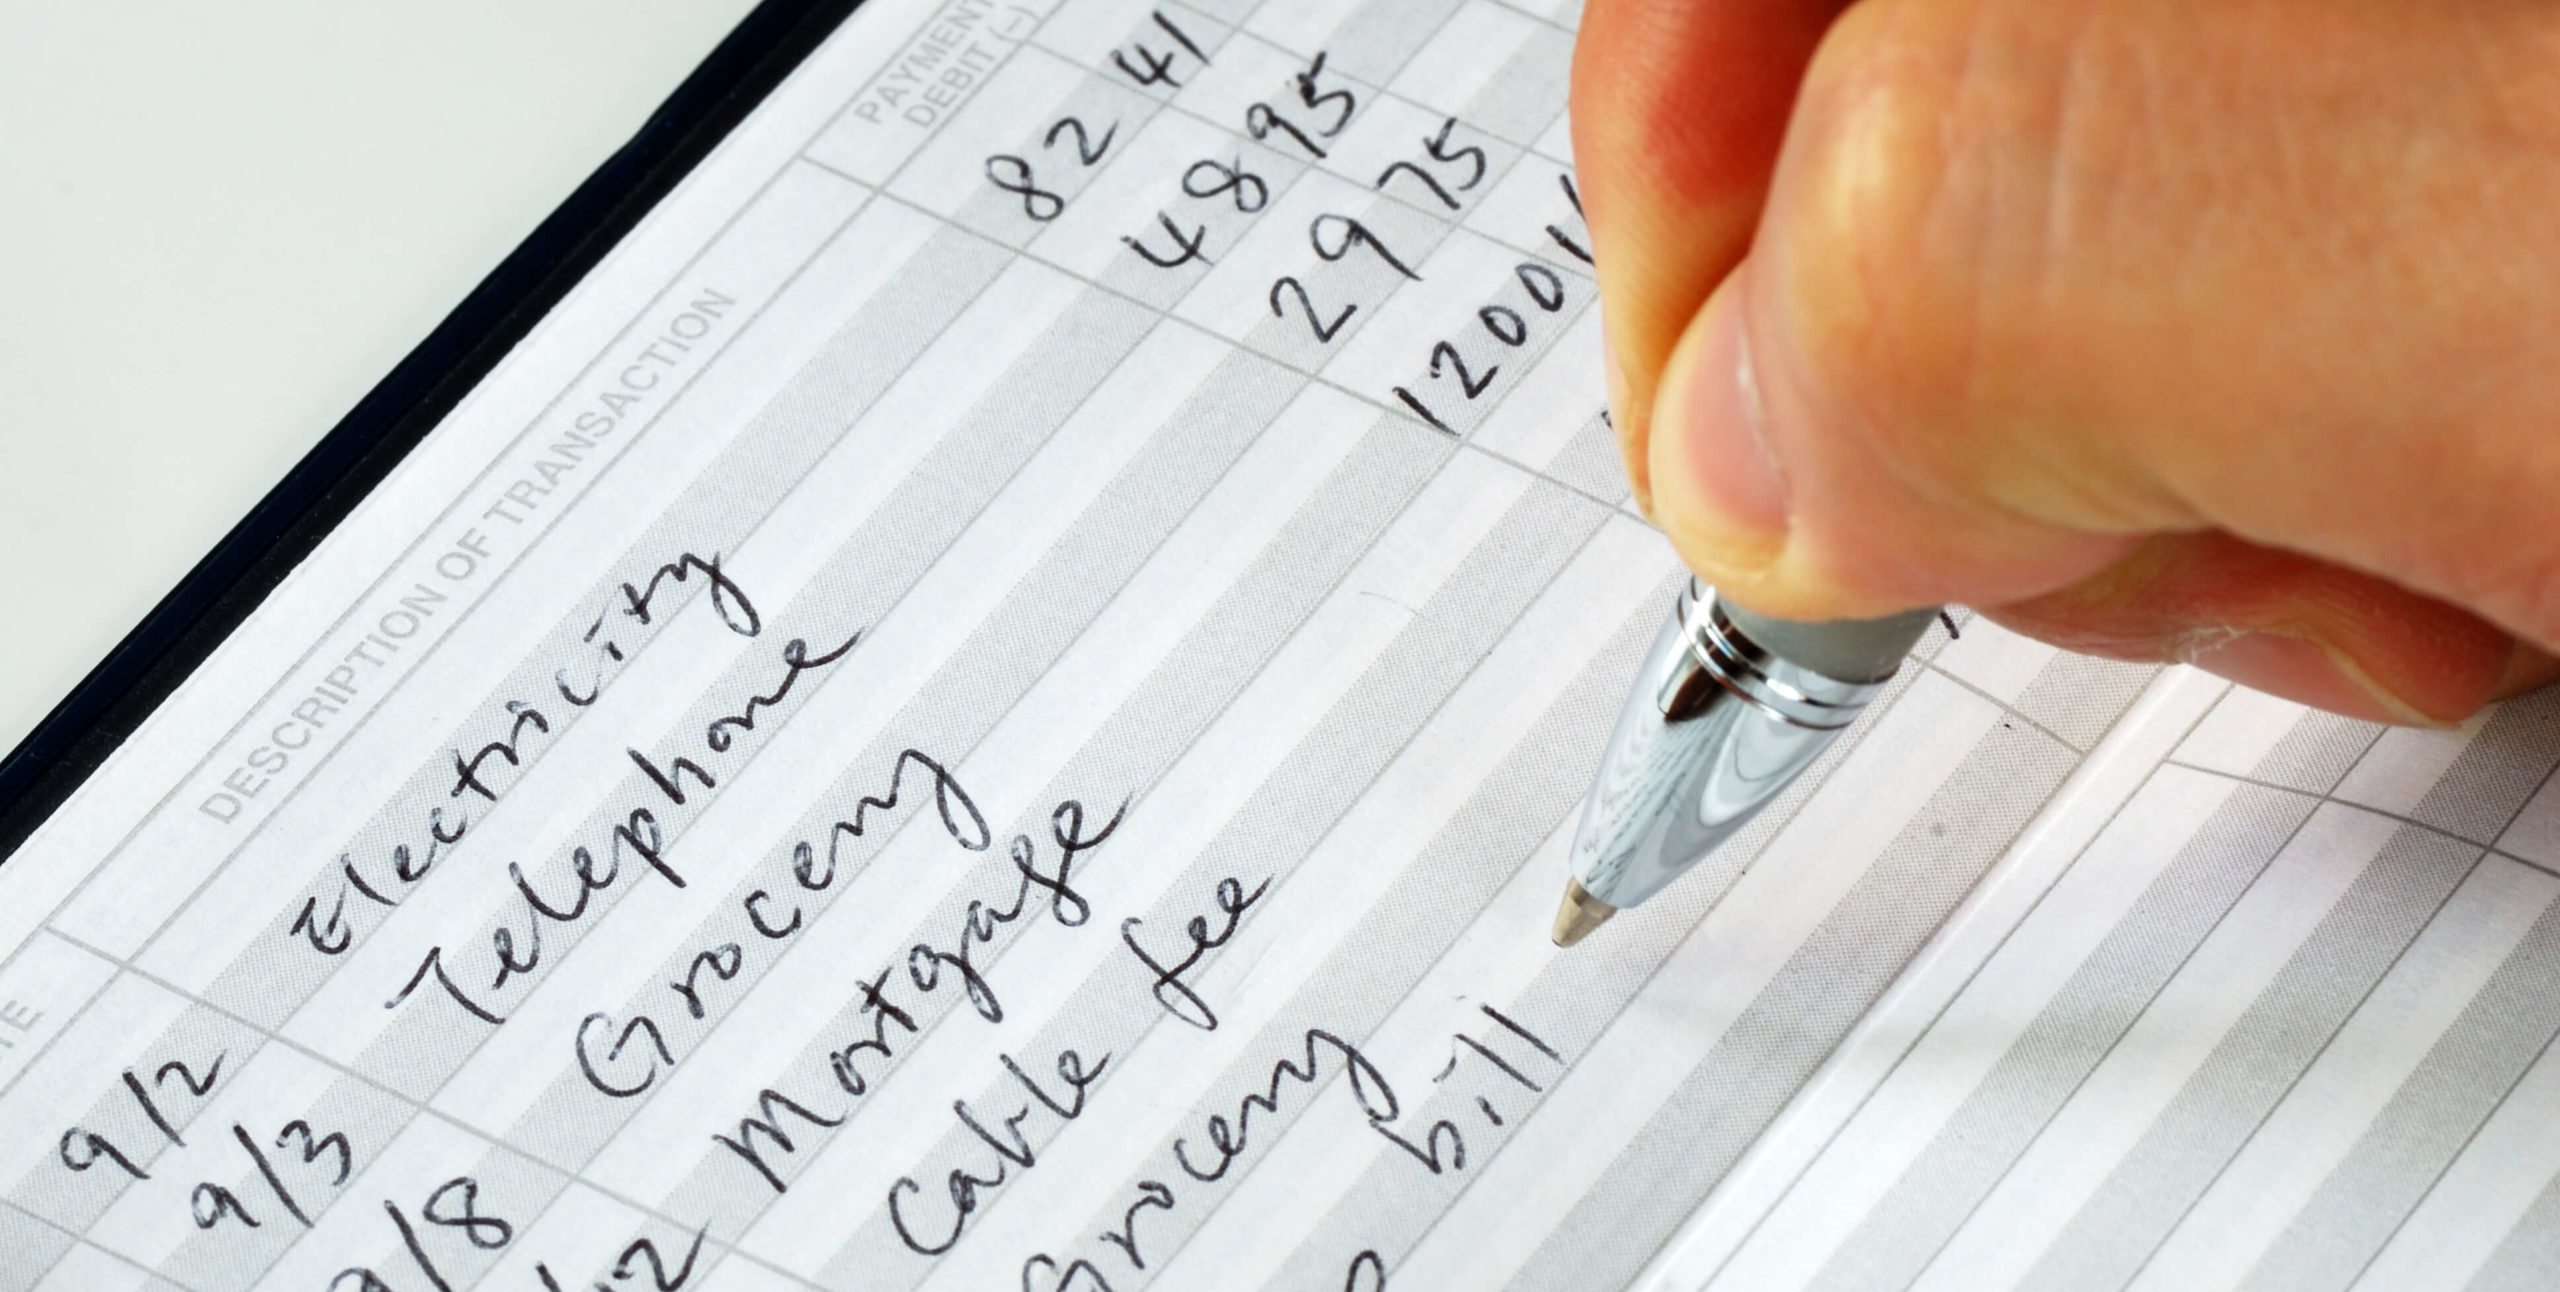 DESCRIPTION OF TRANSACTION
PAYMENT
DEBIT (-)
9/2 Electricity 82 41
9/3 Telephone 48 95
9/8 Grocery 29 75
Mortgage 1200
Cable fee
Grocery
bill